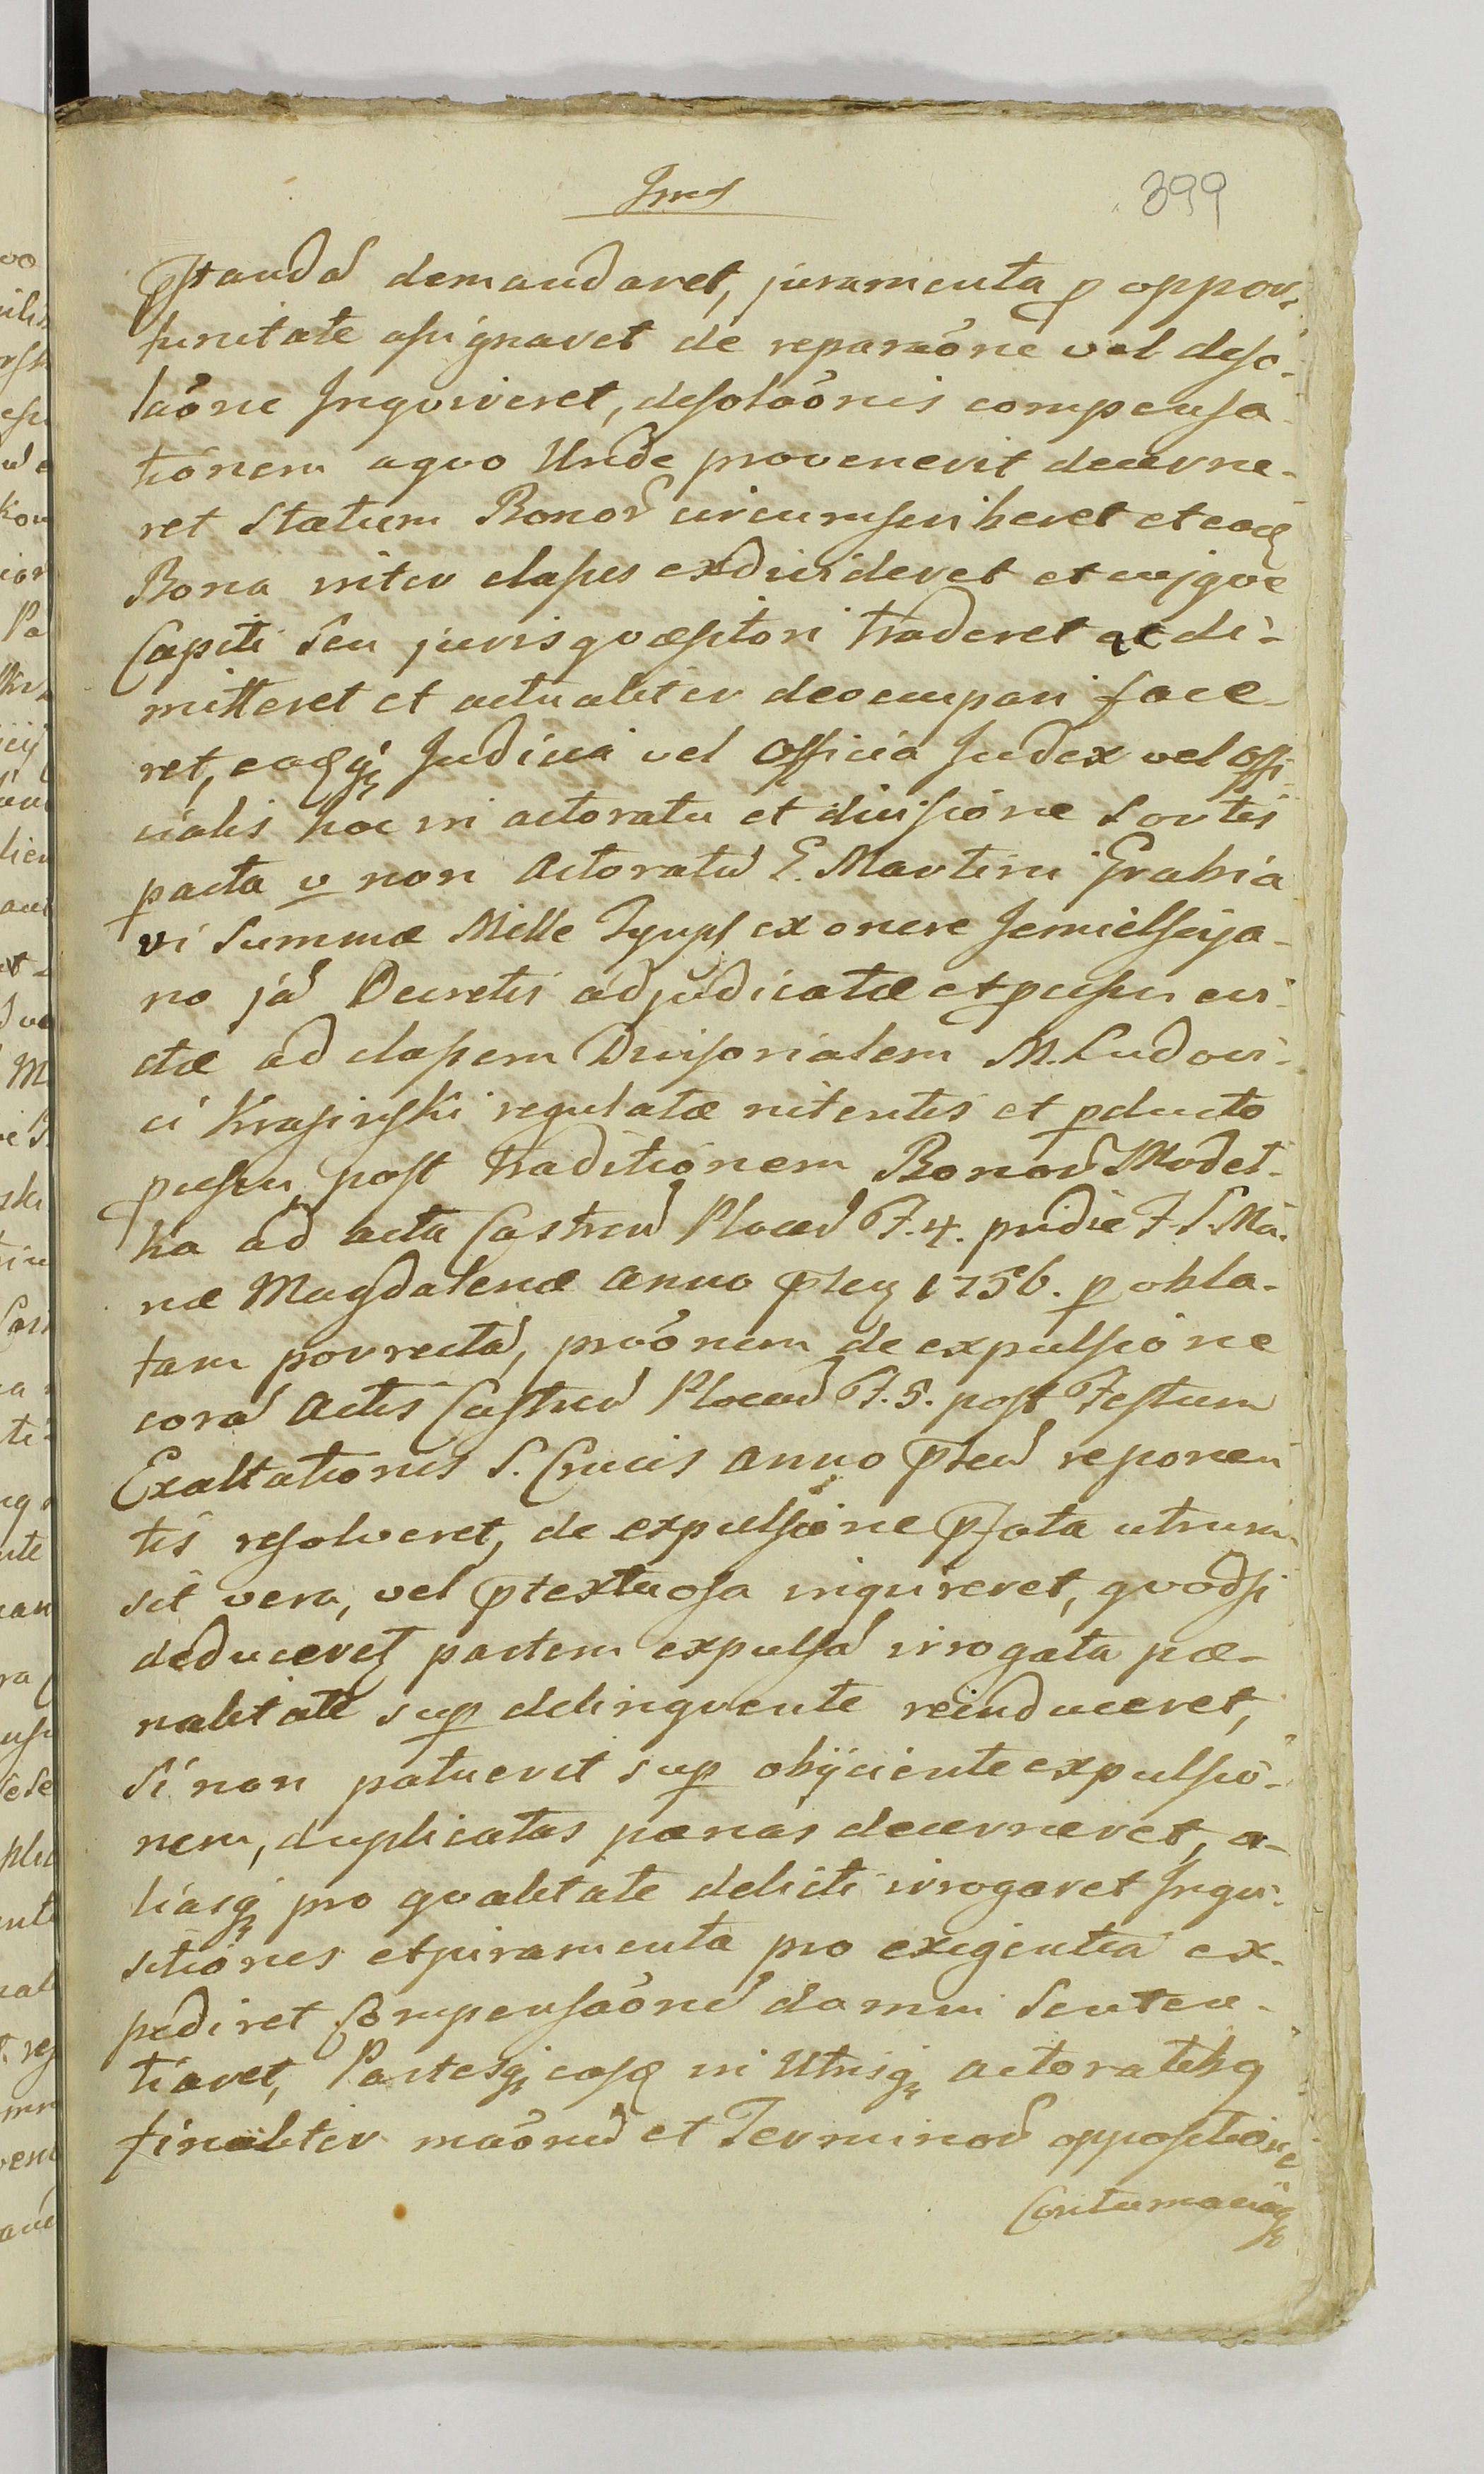 399
pstanda demandaret, juramenta p oppor-
tunitate assignaret de reparaóne vel deso-
laóne Inqvireret, desolaónis compensa
tiónem aqvo Unde provenerit decerne-
ret Statum Bonor circumscriberet et eaq
Bona inter classes exdivideret et cujqve
Capiti seu jurisqvæsitori traderet ac di-
mitteret et actualiter deoccupari face-
ret, eaqq Judicia vel Officia Judex vel Offi-
cialis hoc in actoratu et divisione Sortis
pacta v non Actoratu G. Martini Grabia
vi Summæ Mille Tynpf ex onere Jemielscija-
no ja Decretis adjudicatæ et pcussu eui
ctæ ad classem Divisorialem M. Ludovi-
ci Krasinski regulatæ nitentis et pducto
pcussu post traditionem Bonor Model-
ka ad acta Castren Plocen F. 4. pridie F. S. Ma-
riæ Magdalenæ anno pteq 1756. p obla-
tam porrecta, proónem de expulsione
cora Actis Castren Plocen F. 5. post Festum
Exaltationis S. Crucis anno pten reponen
tis resolveret, de expulsione pfata utrum
sit vera, vel ptextuosa inqvireret, qvodsi
deduceret partem expulsa irrogata pæ-
nalitate sup delinqvente reinduceret,
Si non patuerit sup obijciente expulsio-
nem, duplicatas pænas decerneret, a-
liasq pro qvalitate delicti irrogaret Inqvi-
sitiones et juramenta pro exigentia ex-
pediret Compensaóne damni Senten-
tiaret, Partesq easq in Utrisq actoratibq
finaliter maóne et Terminor oppositione
Contumaciaq